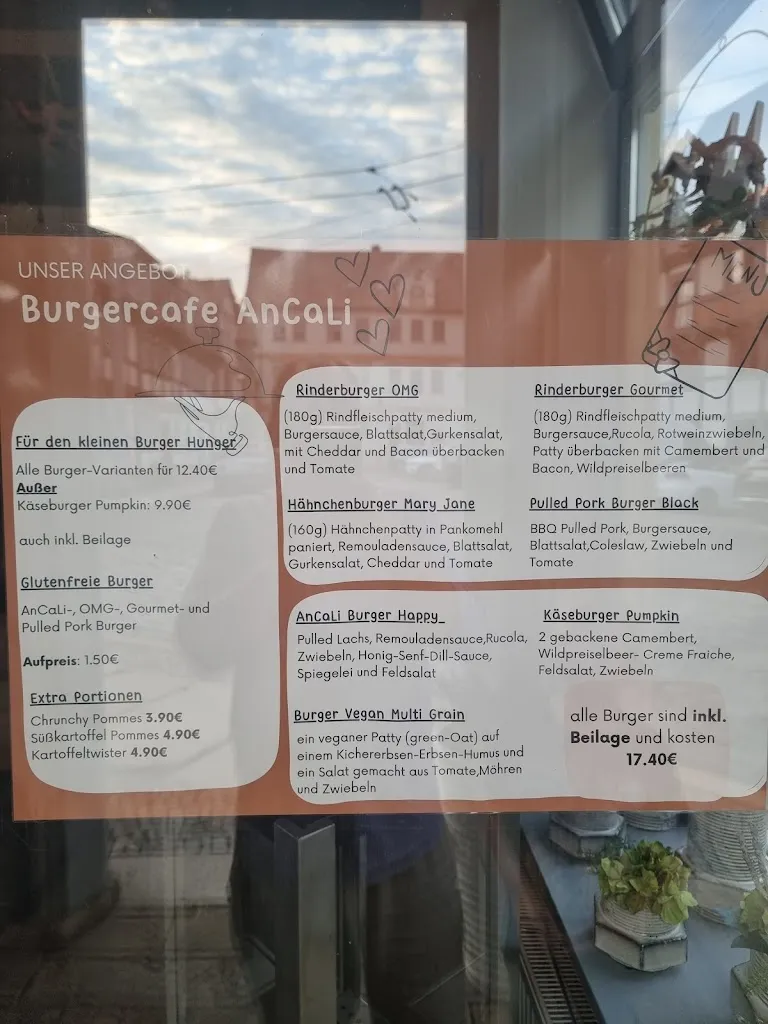 UNSER ANGEBOT
Burgercafe AnCaLi
MENU
Für den kleinen Burger Hunger
Alle Burger-Varianten für 12.40€
Außer
Käseburger Pumpkin: 9.90€
auch inkl. Beilage
Glutenfreie Burger
AnCaLi-, OMG-, Gourmet- und
Pulled Pork Burger
Aufpreis: 1.50€
Extra Portionen
Chrunchy Pommes 3.90€
Süßkartoffel Pommes 4.90€
Kartoffeltwister 4.90€
Rinderburger OMG
(180g) Rindfleischpatty medium,
Burgersauce, Blattsalat,Gurkensalat,
mit Cheddar und Bacon überbacken
und Tomate
Rinderburger Gourmet
(180g) Rindfleischpatty medium,
Burgersauce,Rucola, Rotweinzwiebeln,
Patty überbacken mit Camembert und
Bacon, Wildpreiselbeeren
Hähnchenburger Mary Jane
(160g) Hähnchenpatty in Pankomehl
paniert, Remouladensauce, Blattsalat,
Gurkensalat, Cheddar und Tomate
Pulled Pork Burger Black
BBQ Pulled Pork, Burgersauce,
Blattsalat,Coleslaw, Zwiebeln und
Tomate
AnCaLi Burger Happy
Pulled Lachs, Remouladensauce,Rucola,
Zwiebeln, Honig-Senf-Dill-Sauce,
Spiegelei und Feldsalat
Käseburger Pumpkin
2 gebackene Camembert,
Wildpreiselbeer- Creme Fraiche,
Feldsalat, Zwiebeln
Burger Vegan Multi Grain
ein veganer Patty (green-Oat) auf
einem Kichererbsen-Erbsen-Humus und
ein Salat gemacht aus Tomate,Möhren
und Zwiebeln
alle Burger sind inkl.
Beilage und kosten
17.40€